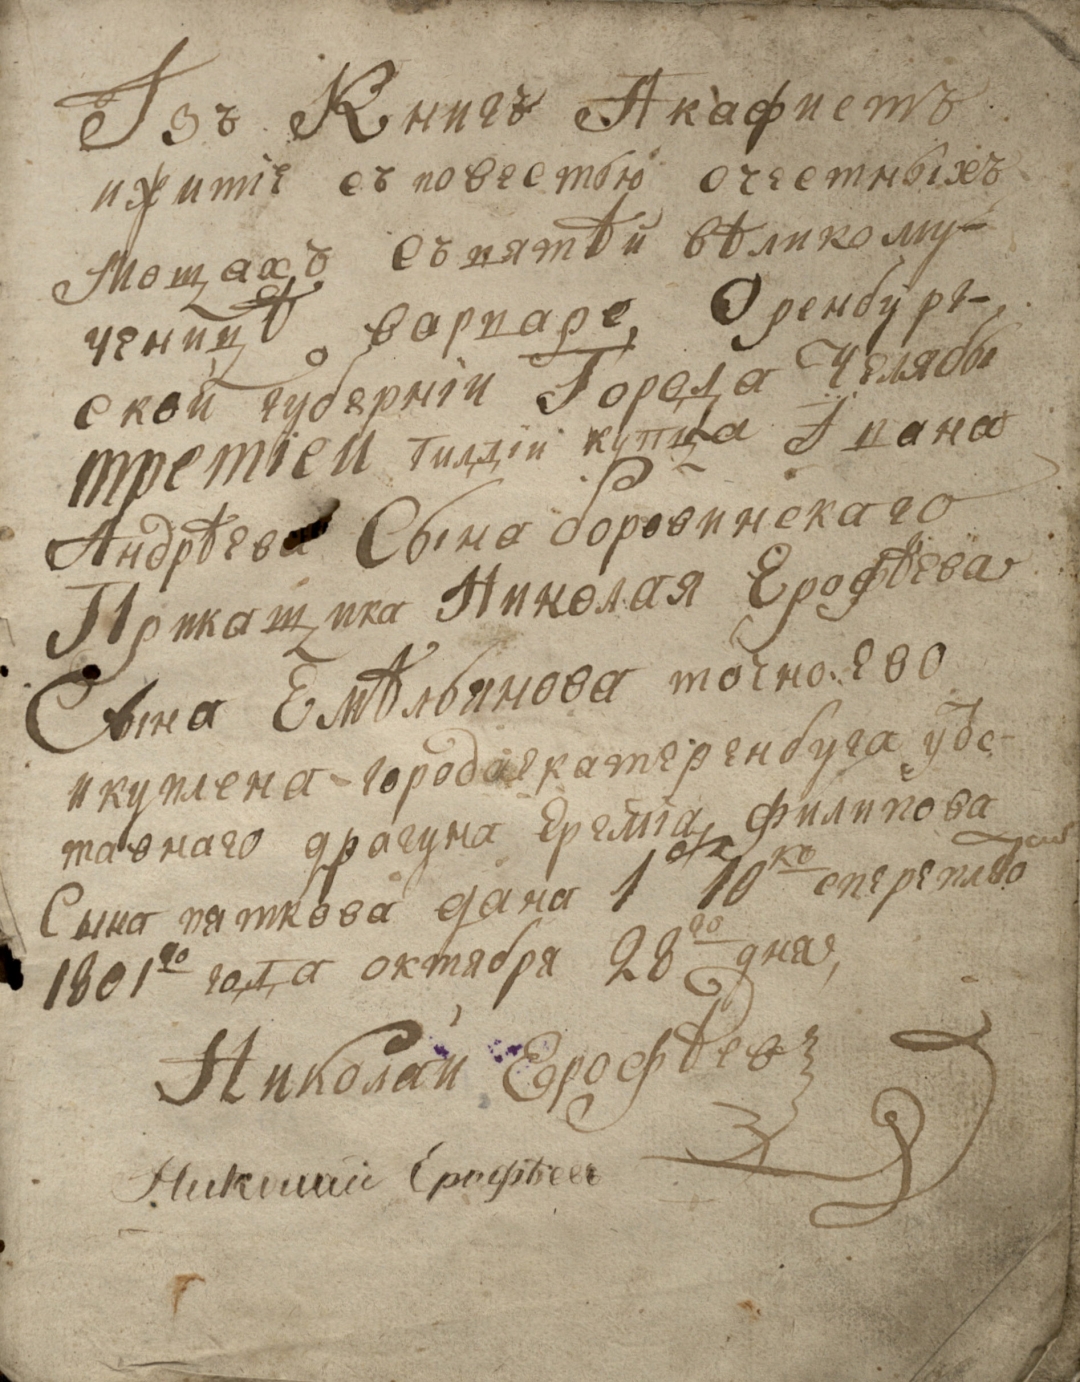 Iзъ Книгъ Акафистъ
ижитiе съповестью очестныхъ
Мощахъ съпятѣй вѣликому-
ченицѣ варваре, Оренбург-
ской губернiи Города Челябы
третiеи гилдiи купца Iвана
Андрѣева Сына боровинскаго
Прикащика Николая Ерофѣева
Сына Емѣльянова точно ево
икуплена городаекатеренбурга убе-
тавнаго драгуна Еремiа, филипова
Сына пяткова дана 1 10ко сперепл
1801го года октября 28го дня,
Николай Ерофѣевъ
Николай Ерофѣевъ